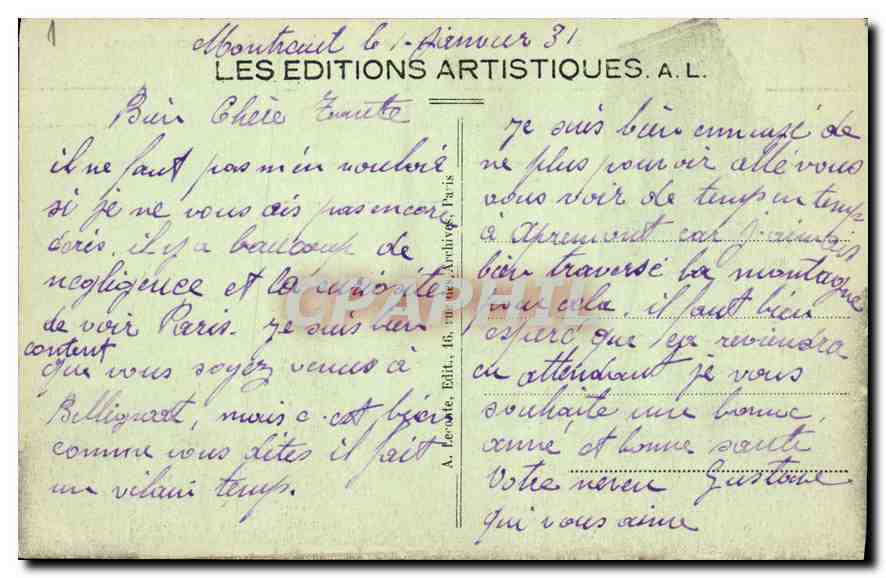 1
Montreuil le 1 Janvier 31
LES EDITIONS ARTISTIQUES. A. L.
Bien Chère Tante
il ne faut pas m'en vouloir
si je ne vous ais pas encore
écris. il y a baucoup de
negligence et la curiosité
de voir Paris. je suis bien
content
que vous soyez venus à
Bellignat, mais c'est bien
comme vous dites il fait
un vilain temp.
A. Leconte, Edit., 16, rue des Archives, Paris
je suis bien ennuyé de
ne plus pouvoir allé vous
vous voir de temp en temp
à Apremont car j'aimais
bien traversé la montagne
pour cela. il faut bien
esperé que ça reviendra
en attendant je vous
souhaite une bonne
anné, et bonne santé
Votre neveu Gustave
qui vous aime
CPAPHIL